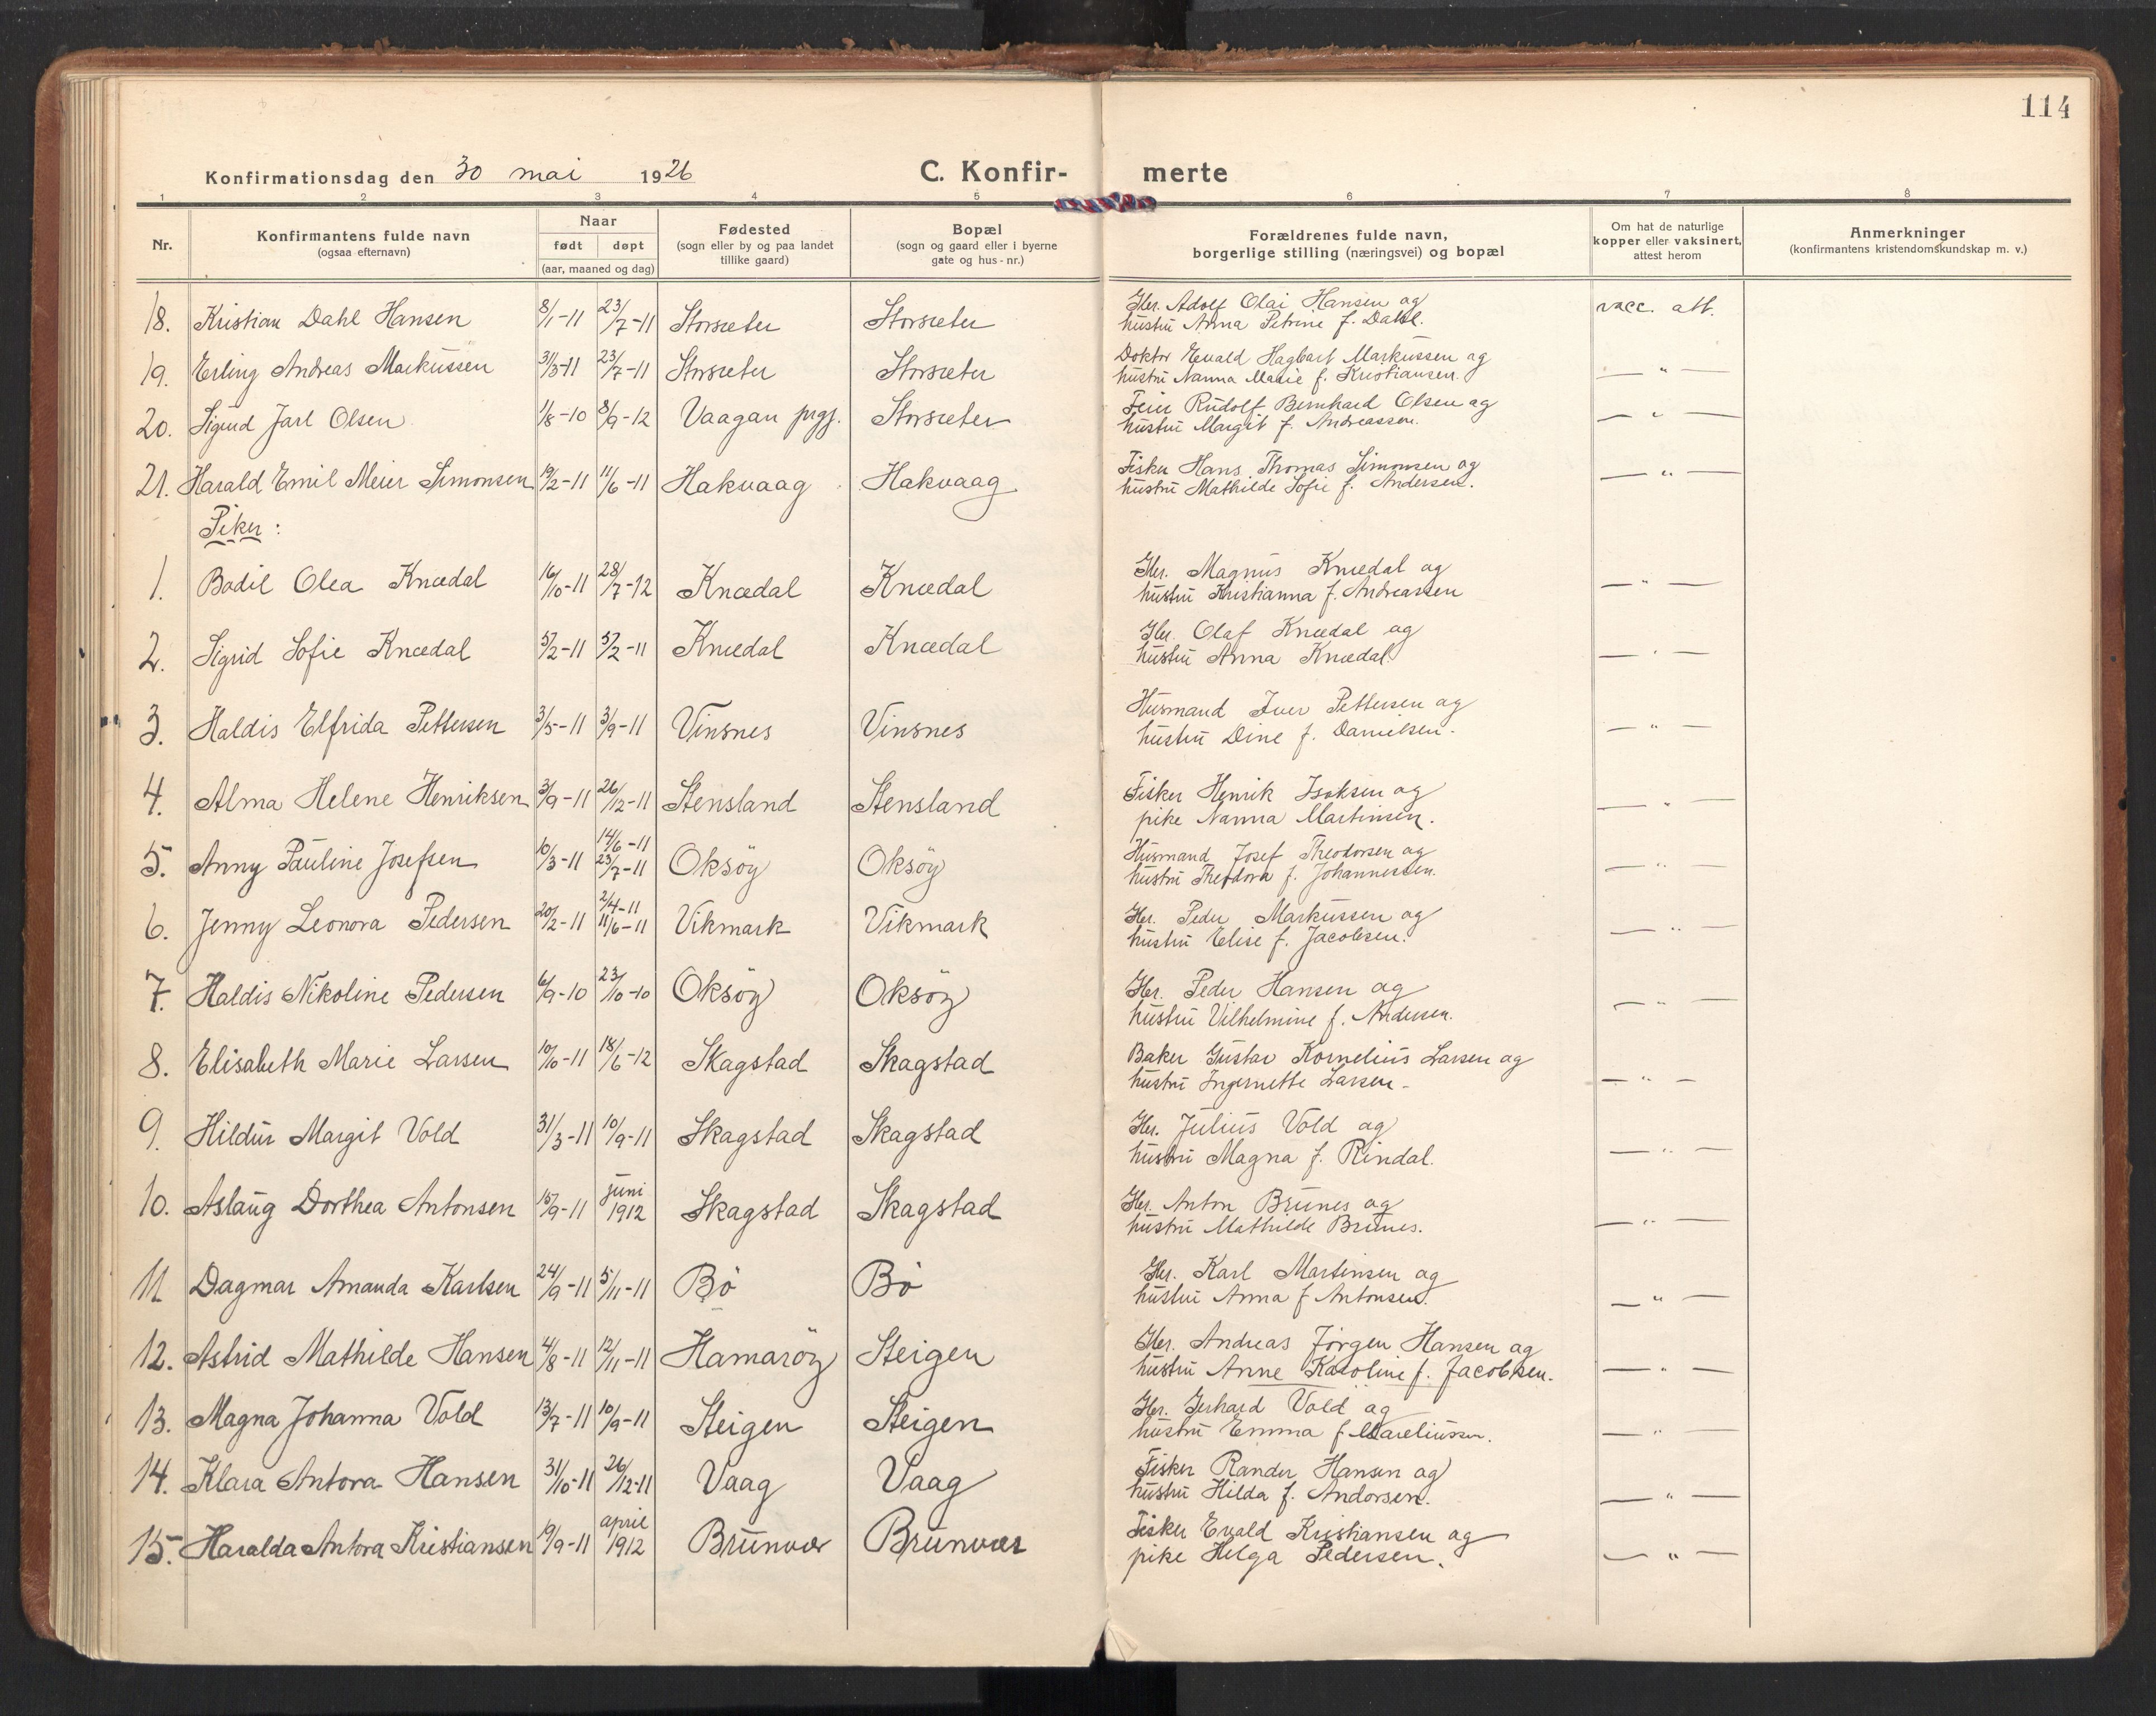 114
Konfirmationsdag den 30 mai 1926
C. Konfir- merte
1 2 3 4 5 6 7 8
Nr.
Konfirmantens fulde navn
(ogsaa efternavn)
Naar
født døpt
(aar, maaned og dag)
Fødested
(sogn eller by og paa landet
tillike gaard)
Bopæl
(sogn og gaard eller i byerne
gate og hus-nr.)
Forældrenes fulde navn,
borgerlige stilling (næringsvei) og bopæl
Om hat de naturlige
kopper eller vaksinert,
attest herom
Anmerkninger
(konfirmantens kristendomskundskap m. v.)
18. Kristian Dahl Hansen 8/1-11 23/7-11 Storsæter Storsæter Gbr. Adolf Olai Hansen og vacc. att.
hustru Anna Petrine f. Dahl.
19. Erling Andreas Markussen 31/3-11 23/7-11 Storsæter Storsæter Doktor Evald Hagbart Markussen og — " —
hustru Nanna Marie f. Kristiansen.
20. Sigurd Jarl Olsen 1/8-10 8/9-12 Vaagan prgj. Storsæter Feier Rudolf Bernhard Olsen og — " —
hustru Margit f. Andreassen.
21. Harald Emil Meier Simonsen 19/2-11 11/6-11 Hakvaag Hakvaag Fisker Hans Thomas Simonsen og — " —
hustru Mathilde Sofie f. Andersen.
Piker:
1. Bodil Olea Knædal 16/10-11 28/7-12 Knædal Knædal Gbr. Magnus Knædal og — " —
hustru Kristianna f. Andreassen
2. Sigrid Sofie Knædal 5/2-11 5/2-11 Knædal Knædal Gbr. Olaf Knædal og — " —
hustru Anna Knædal.
3. Haldis Elfrida Pettersen 3/5-11 3/9-11 Vinsnes Vinsnes Husmand Iver Pettersen og — " —
hustru Dine f. Danielsen.
4. Alma Helene Henriksen 3/9-11 26/12-11 Stensland Stensland Fisker Henrik Isaksen og — " —
pike Nanna Martinsen.
5. Anny Pauline Josefsen 10/3-11 14/6-11 23/7-11 Oksöy Oksöy Husmand Josef Theodorsen og — " —
hustru Theodora f. Johannessen.
6. Jenny Leonora Pedersen 20/2-11 2/4-11 11/6-11 Vikmark Vikmark Gbr. Peder Markussen og — " —
hustru Elise f. Jacobsen.
7. Haldis Nikoline Pedersen 6/9-10 23/10-10 Oksöy Oksöy Gbr. Peder Hansen og — " —
hustru Vilhelmine f. Andersen.
8. Elisabeth Marie Larsen 10/10-11 18/6-12 Skagstad Skagstad Baker Gustav Kornelius Larsen og — " —
hustru Ingernette Larsen.
9. Hildur Margit Vold 31/3-11 10/9-11 Skagstad Skagstad Gbr. Julius Vold og — " —
hustru Magna f. Rindal.
10. Aslaug Dorthea Antonsen 15/9-11 juni 1912 Skagstad Skagstad Gbr. Anton Brunes og — " —
hustru Mathilde Brunes.
11 Dagmar Amanda Karlsen 24/9-11 5/11-11 Bö Bö Gbr. Karl Martinsen og — " —
hustru Anna f Antonsen.
12. Astrid Mathilde Hansen 4/8-11 12/11-11 Hamaröy Steigen Gbr. Andreas Jörgen Hansen og — " —
hustru Anne Karoline f. Jacobsen.
13. Magna Johanna Vold 13/7-11 10/9-11 Steigen Steigen Gbr. Gerhard Vold og — " —
hustru Emma f. Mareliussen.
14. Klara Antora Hansen 31/10-11 26/12-11 Vaag Vaag Fisker Rander Hansen og — " —
hustru Hilda f. Andorsen.
15. Haralda Antora Kristiansen 19/9-11 april 1912 Brunvær Brunvær Fisker Evald Kristiansen og — " —
pike Helga Pedersen.